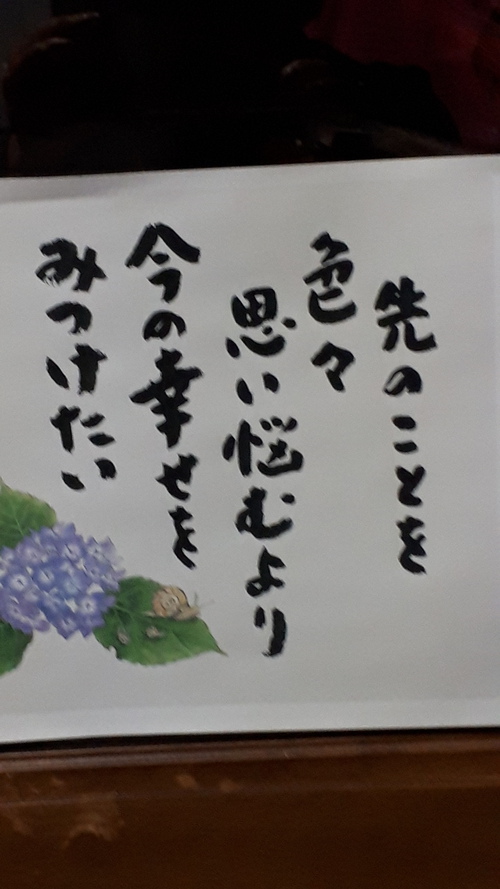 先のことを
色々
思い悩むより
今の幸せを
みつけたい